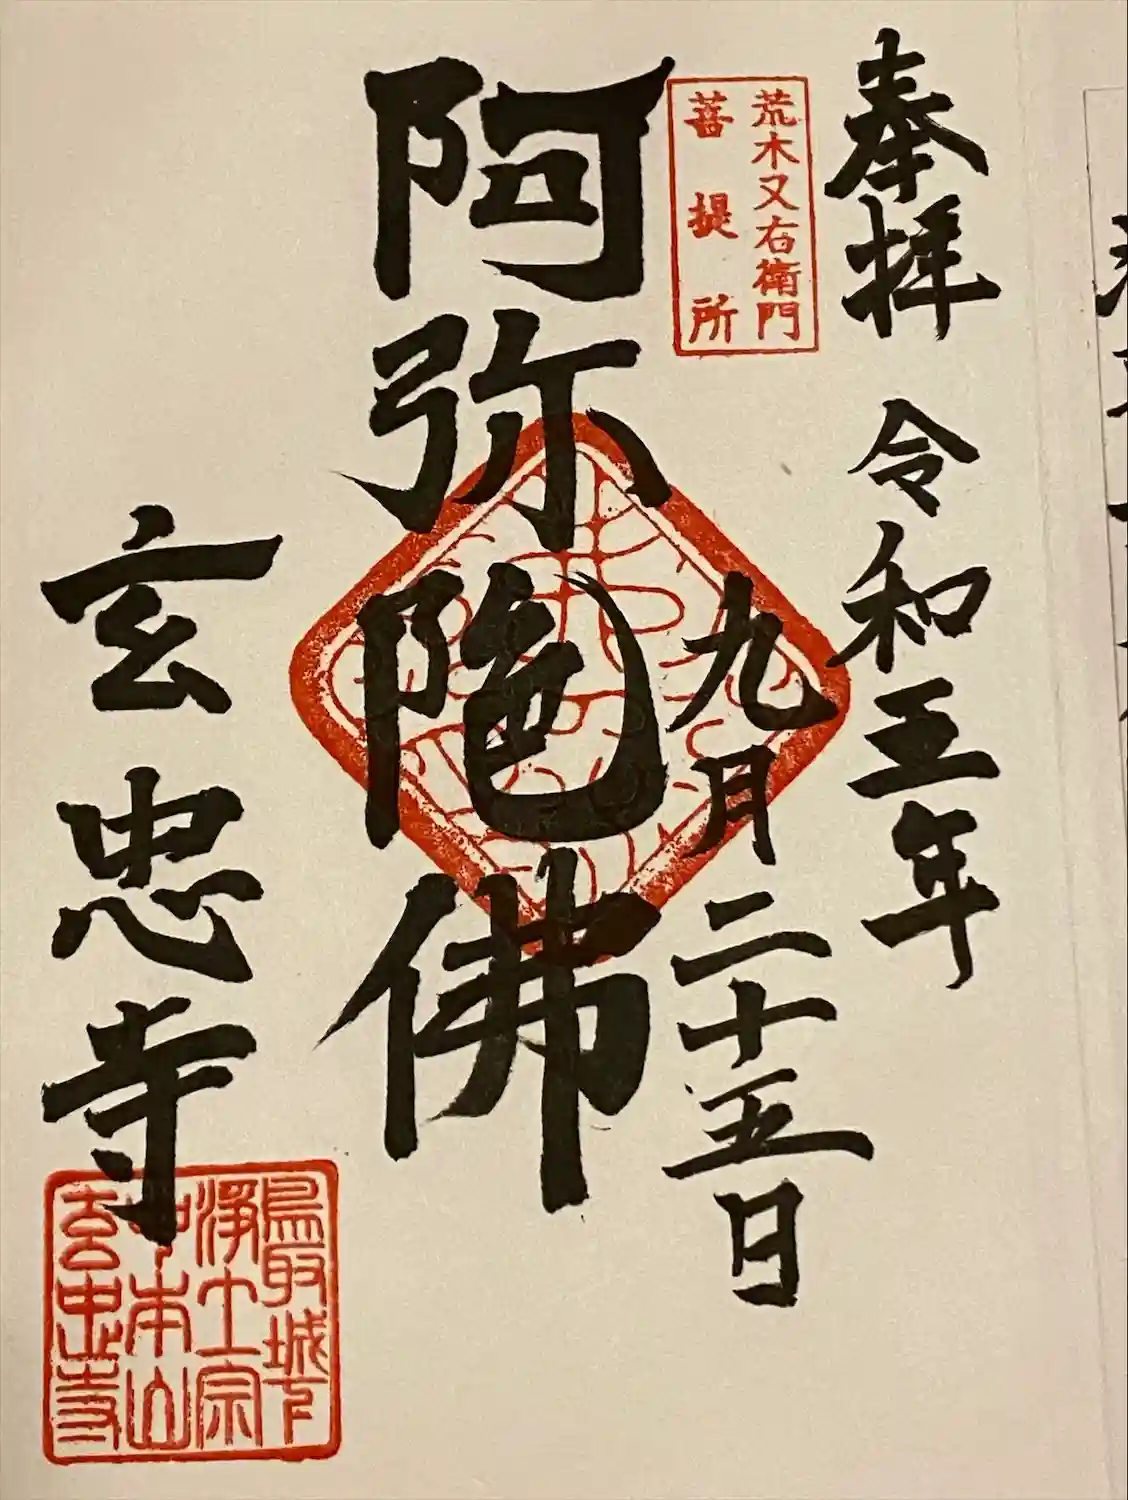 奉拝 令和五年
九月二十五日
荒木又右衛門
菩提所
阿弥陀佛
玄忠寺
鳥取城下
浄土宗
中本山
玄忠寺